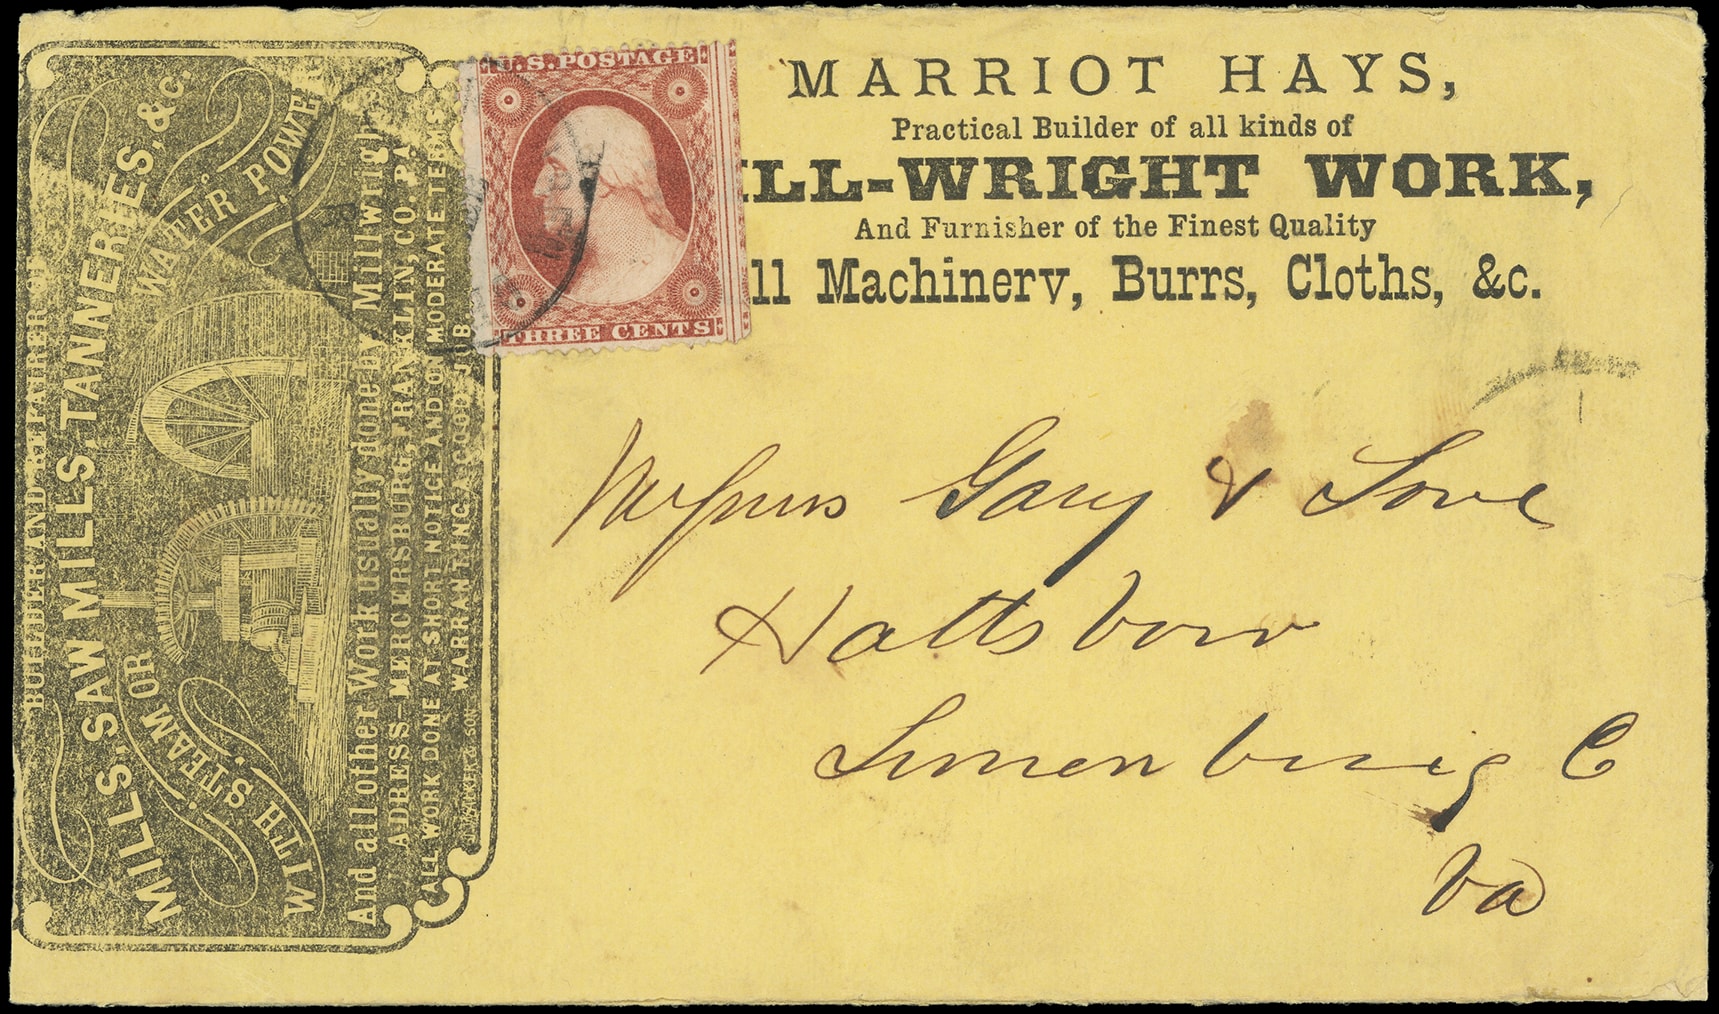 MARRIOT HAYS,
Practical Builder of all kinds of
ILL-WRIGHT WORK,
And Furnisher of the Finest Quality
ll Machinery, Burrs, Cloths, &c.
U.S. POSTAGE
THREE CENTS
BUILDER AND REPAIRER OF
MILLS, SAW MILLS, TANNERIES, &c.
WITH STEAM OR WATER POWER,
And all other Work usually done by Millwrights
ADDRESS—MERCERSBURG, FRANKLIN, CO. PA
ALL WORK DONE AT SHORT NOTICE AND ON MODERATE TERMS
WARRANTING A GOOD JOB
& SON
Messrs Gary & Love
Hattsboro
Lunenburg C
Va